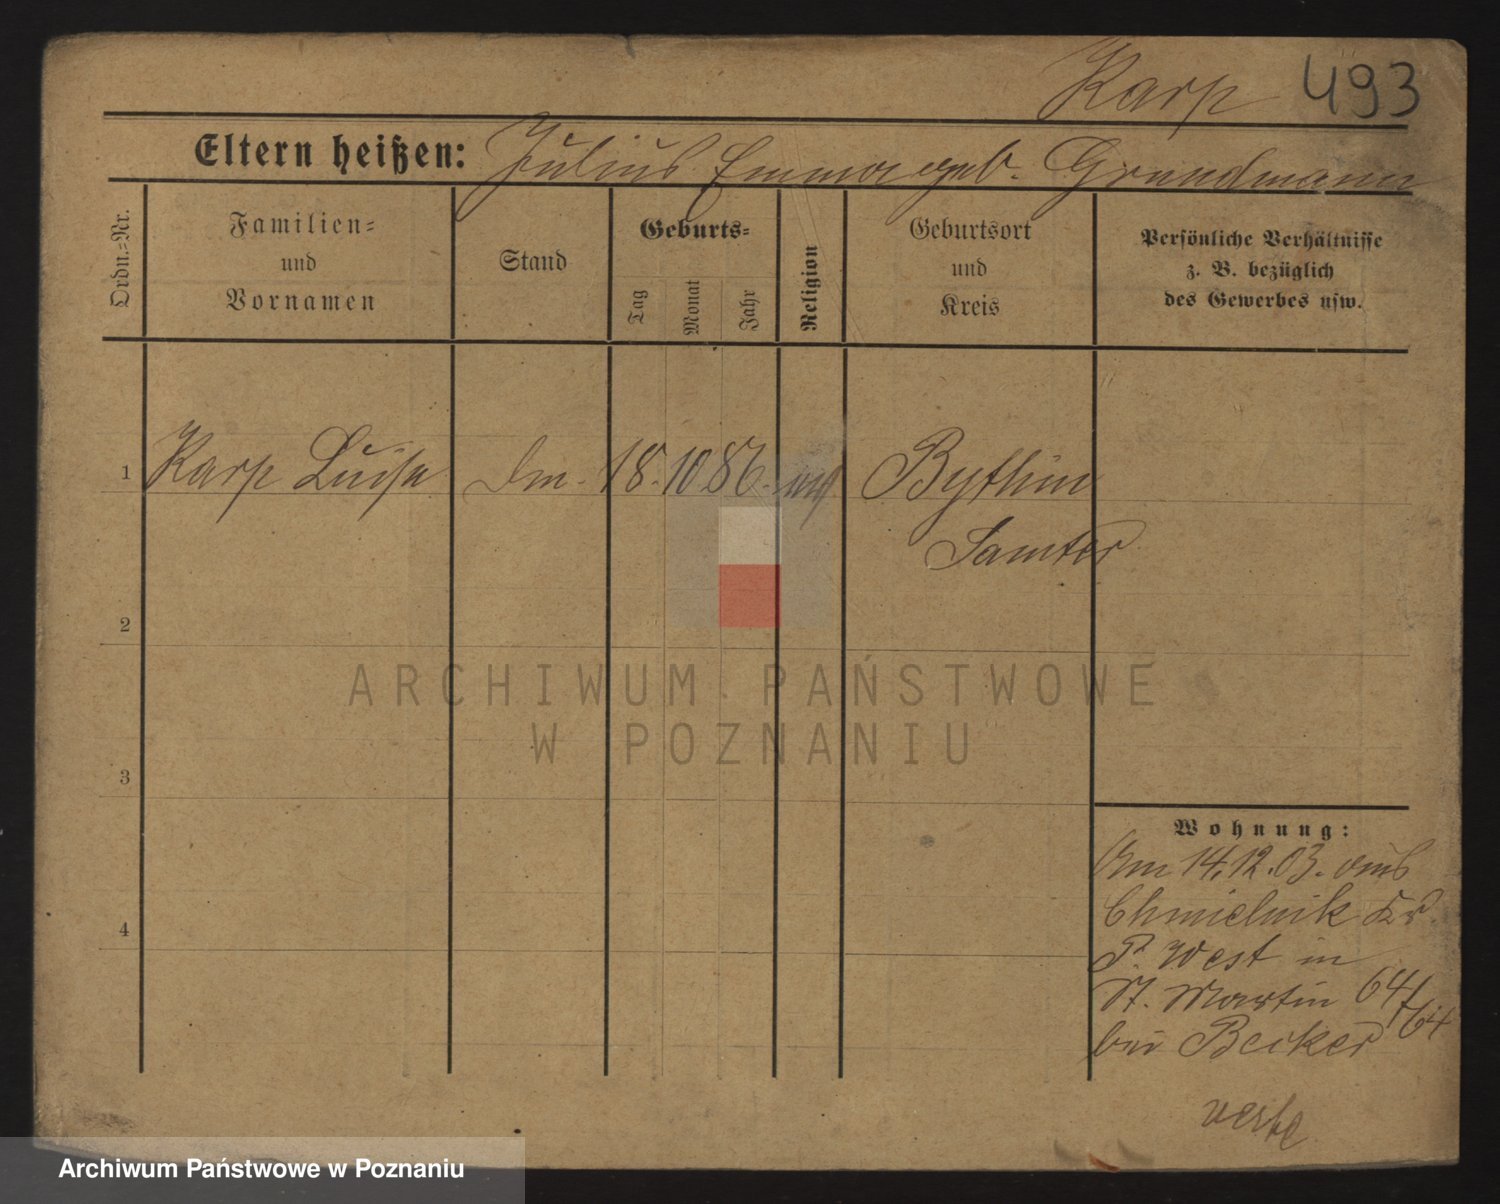 Karp 493
Eltern heißen: Julius Emma geb. Grundmann
Ordn.-Nr.
Familien-
und
Vornamen
Stand
Geburts-
Tag
Monat
Jahr
Religion
Geburtsort
und
Kreis
Persönliche Verhältnisse
z. B. bezüglich
des Gewerbes usw.
1 Karp Luise 18. 10 86. ev Bythin
Samter
2
3
4
Wohnung:
Am 14.12.03. aus
Chmielnik Kr.
P. West in
St. Martin 64/64
bei Becker
ARCHIWUM PAŃSTWOWE
W POZNANIU
Archiwum Państwowe w Poznaniu